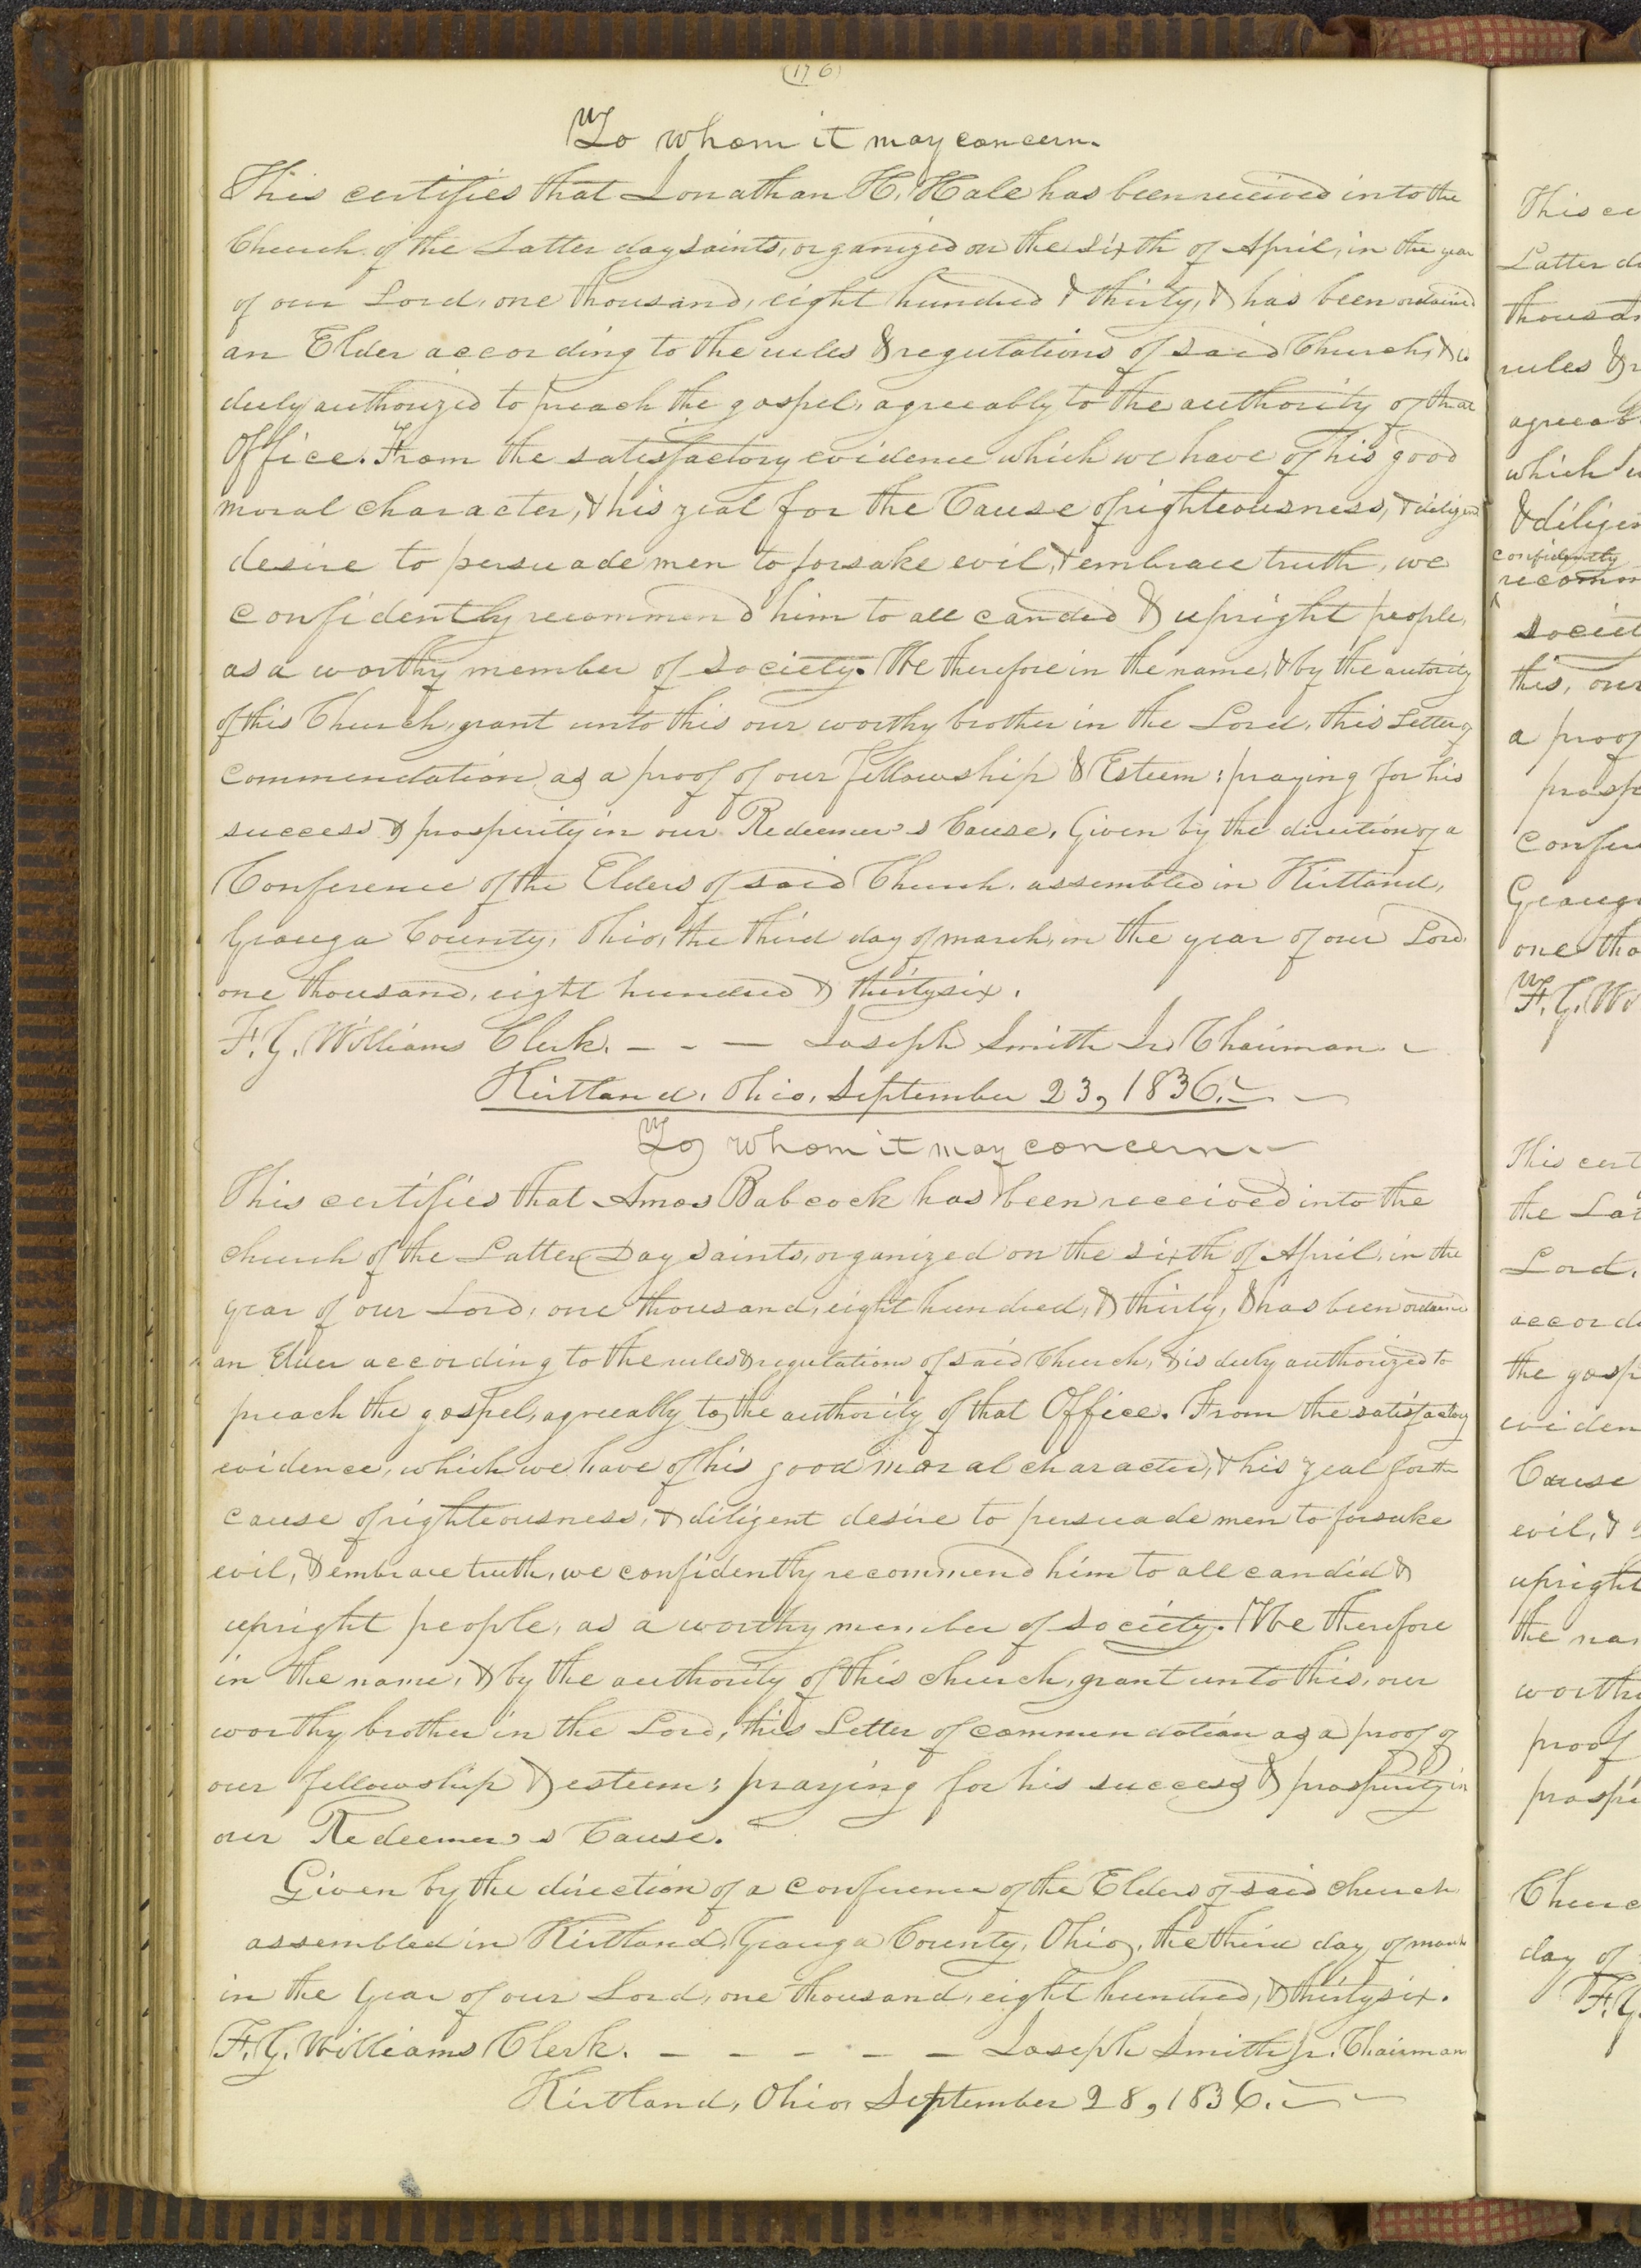 (176)
To whom it may concern.
This certifies that Jonathan H. Hale has been received into the
Church of the Latter day saints, organized on the sixth of April, in the year
of our Lord, one thousand, eight hundred & thirty, & has been ordained
an Elder according to the rules & regulations of said Church, & is
duly authorized to preach the gospel, agreeably to the authority of that
Office. From the satisfactory evidence which we have of his good
moral character, & his zeal for the Cause of righteousness, & diligent
desire to persuade men to forsake evil, & embrace truth, we
confidently recommend him to all candid & upright people,
as a worthy member of society. We therefore in the name, & by the autority
of this Church, grant unto this our worthy brother in the Lord, this Letter of
commendation as a proof of our fellowship & Esteem: praying for his
success & prosperity in our Redeemer's Cause. Given by the direction of a
Conference of the Elders of said Church, assembled in Kirtland,
Geauga County, Ohio, the third day of march, in the year of our Lord,
one thousand, eight hundred & thirtysix.
F. G. Williams Clerk. – – – Joseph Smith Jr. Chairman.
Kirtland, Ohio, September 23, 1836.
To whom it may concern.
This certifies that Amos Babcock has been received into the
church of the Latter Day saints, organized on the sixth of April, in the
year of our Lord, one thousand, eight hundred, & thirty, & has been ordained
an Elder according to the rules & regulations of said Church, & is duly authorized to
preach the gospel, agreeably to the authority of that Office. From the satisfactory
evidence, which we have of his good moral character, & his zeal for the
cause of righteousness, & diligent desire to persuade men to forsake
evil, & embrace truth, we confidently recommend him to all candid &
upright people, as a worthy member of society. We therefore
in the name, & by the authority of this church, grant unto this, our
worthy brother in the Lord, this Letter of commendation as a proof of
our fellowship & esteem: praying for his success & prosperity in
our Redeemer's Cause.
Given by the direction of a conference of the Elders of said church
assembled in Kirtland, Geauga County, Ohio, the third day of march
in the Year of our Lord, one thousand, eight hundred, & thirtysix.
F. G. Williams Clerk. – – – – – Joseph Smith Jr. Chairman
Kirtland, Ohio, September 28, 1836.
This ce
Latter d
thousan
rules &
agreeab
which
& dilige
confidently
recomm
societ
this, our
a proof
prosp
Confe
Geauga
one tho
F. G. Wi
This cert
the Lat
Lord,
accord
the gosp
eviden
Cause
evil, &
upright
the na
worthy
proof
prospe
Churc
day of
F. G.